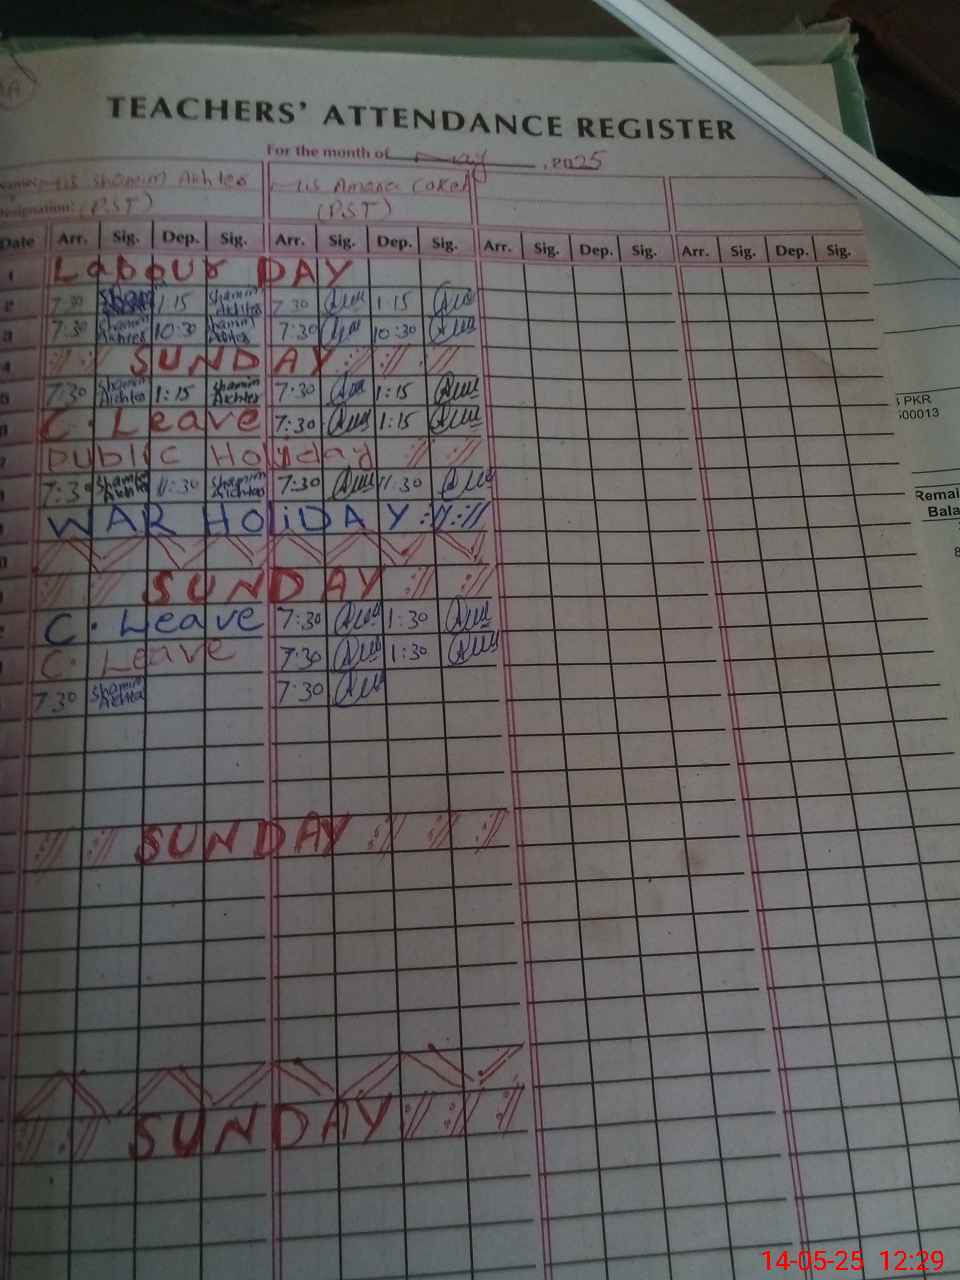 TEACHERS' ATTENDANCE REGISTER
For the month of May, 2025
Shamim Akhter
Designation: (P.S.T) (P.S.T)
Date Arr. Sig. Dep. Sig. Arr. Sig. Dep. Sig. Arr. Sig. Dep. Sig. Arr. Sig. Dep. Sig.
1 Labour DAY
2 7:30 1:15 Shamim Akhter 7:30 1:15
3 7:30 Shamim Akhter 10:30 Shamim Akhter 7:30 10:30
4 SUNDAY
7:30 Shamim Akhter 1:15 Shamim Akhter 7:30 1:15
C. Leave 7:30 1:15
Public Holiday
7:30 Shamim Akhter 11:30 Shamim Akhter 7:30 11:30
WAR HOLiDAY
SUNDAY
C. Leave 7:30 1:30
C. Leave 7:30 1:30
7:30 Shamim Akhter 7:30
SUNDAY
SUNDAY
PKR
500013
Remai
Bala
14-05-25 12:29